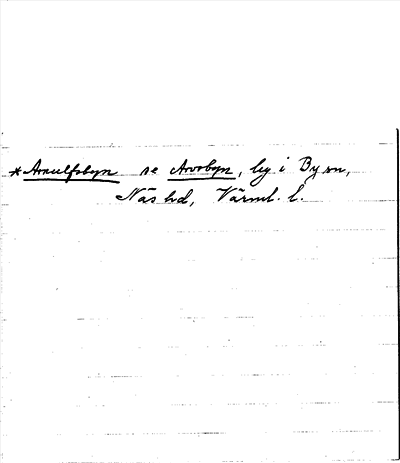 *Arnulfsbyn se Arvsbyn, by i By sn,
Näs hd, Värml. l.